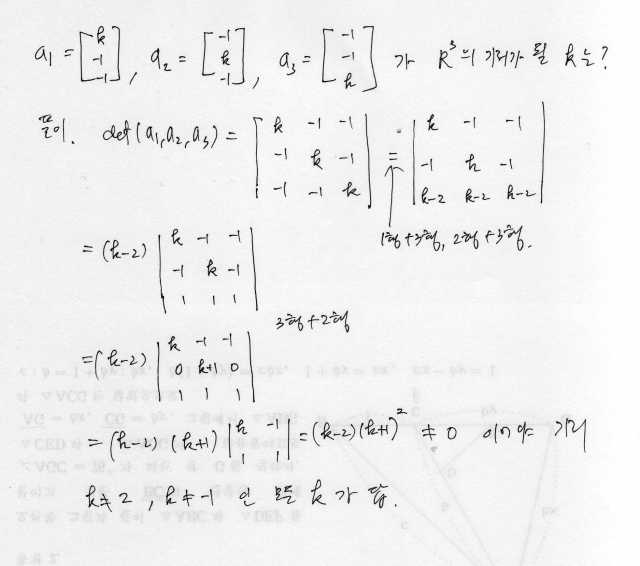 a₁ = [k -1 -1], a₂ = [-1 k -1], a₃ = [-1 -1 k] 가 R³의 기저가 될 k는?
풀이. det(a₁,a₂,a₃) = |k -1 -1; -1 k -1; -1 -1 k| = |k -1 -1; -1 k -1; k-2 k-2 k-2|
1행+3행, 2행+3행.
= (k-2) |k -1 -1; -1 k -1; 1 1 1|
3행+2행
= (k-2) |k -1 -1; 0 k+1 0; 1 1 1|
= (k-2)(k+1) |k -1; 1 1| = (k-2)(k+1)² ≠ 0 이어야 기저
k≠2, k≠-1 인 모든 k가 답.